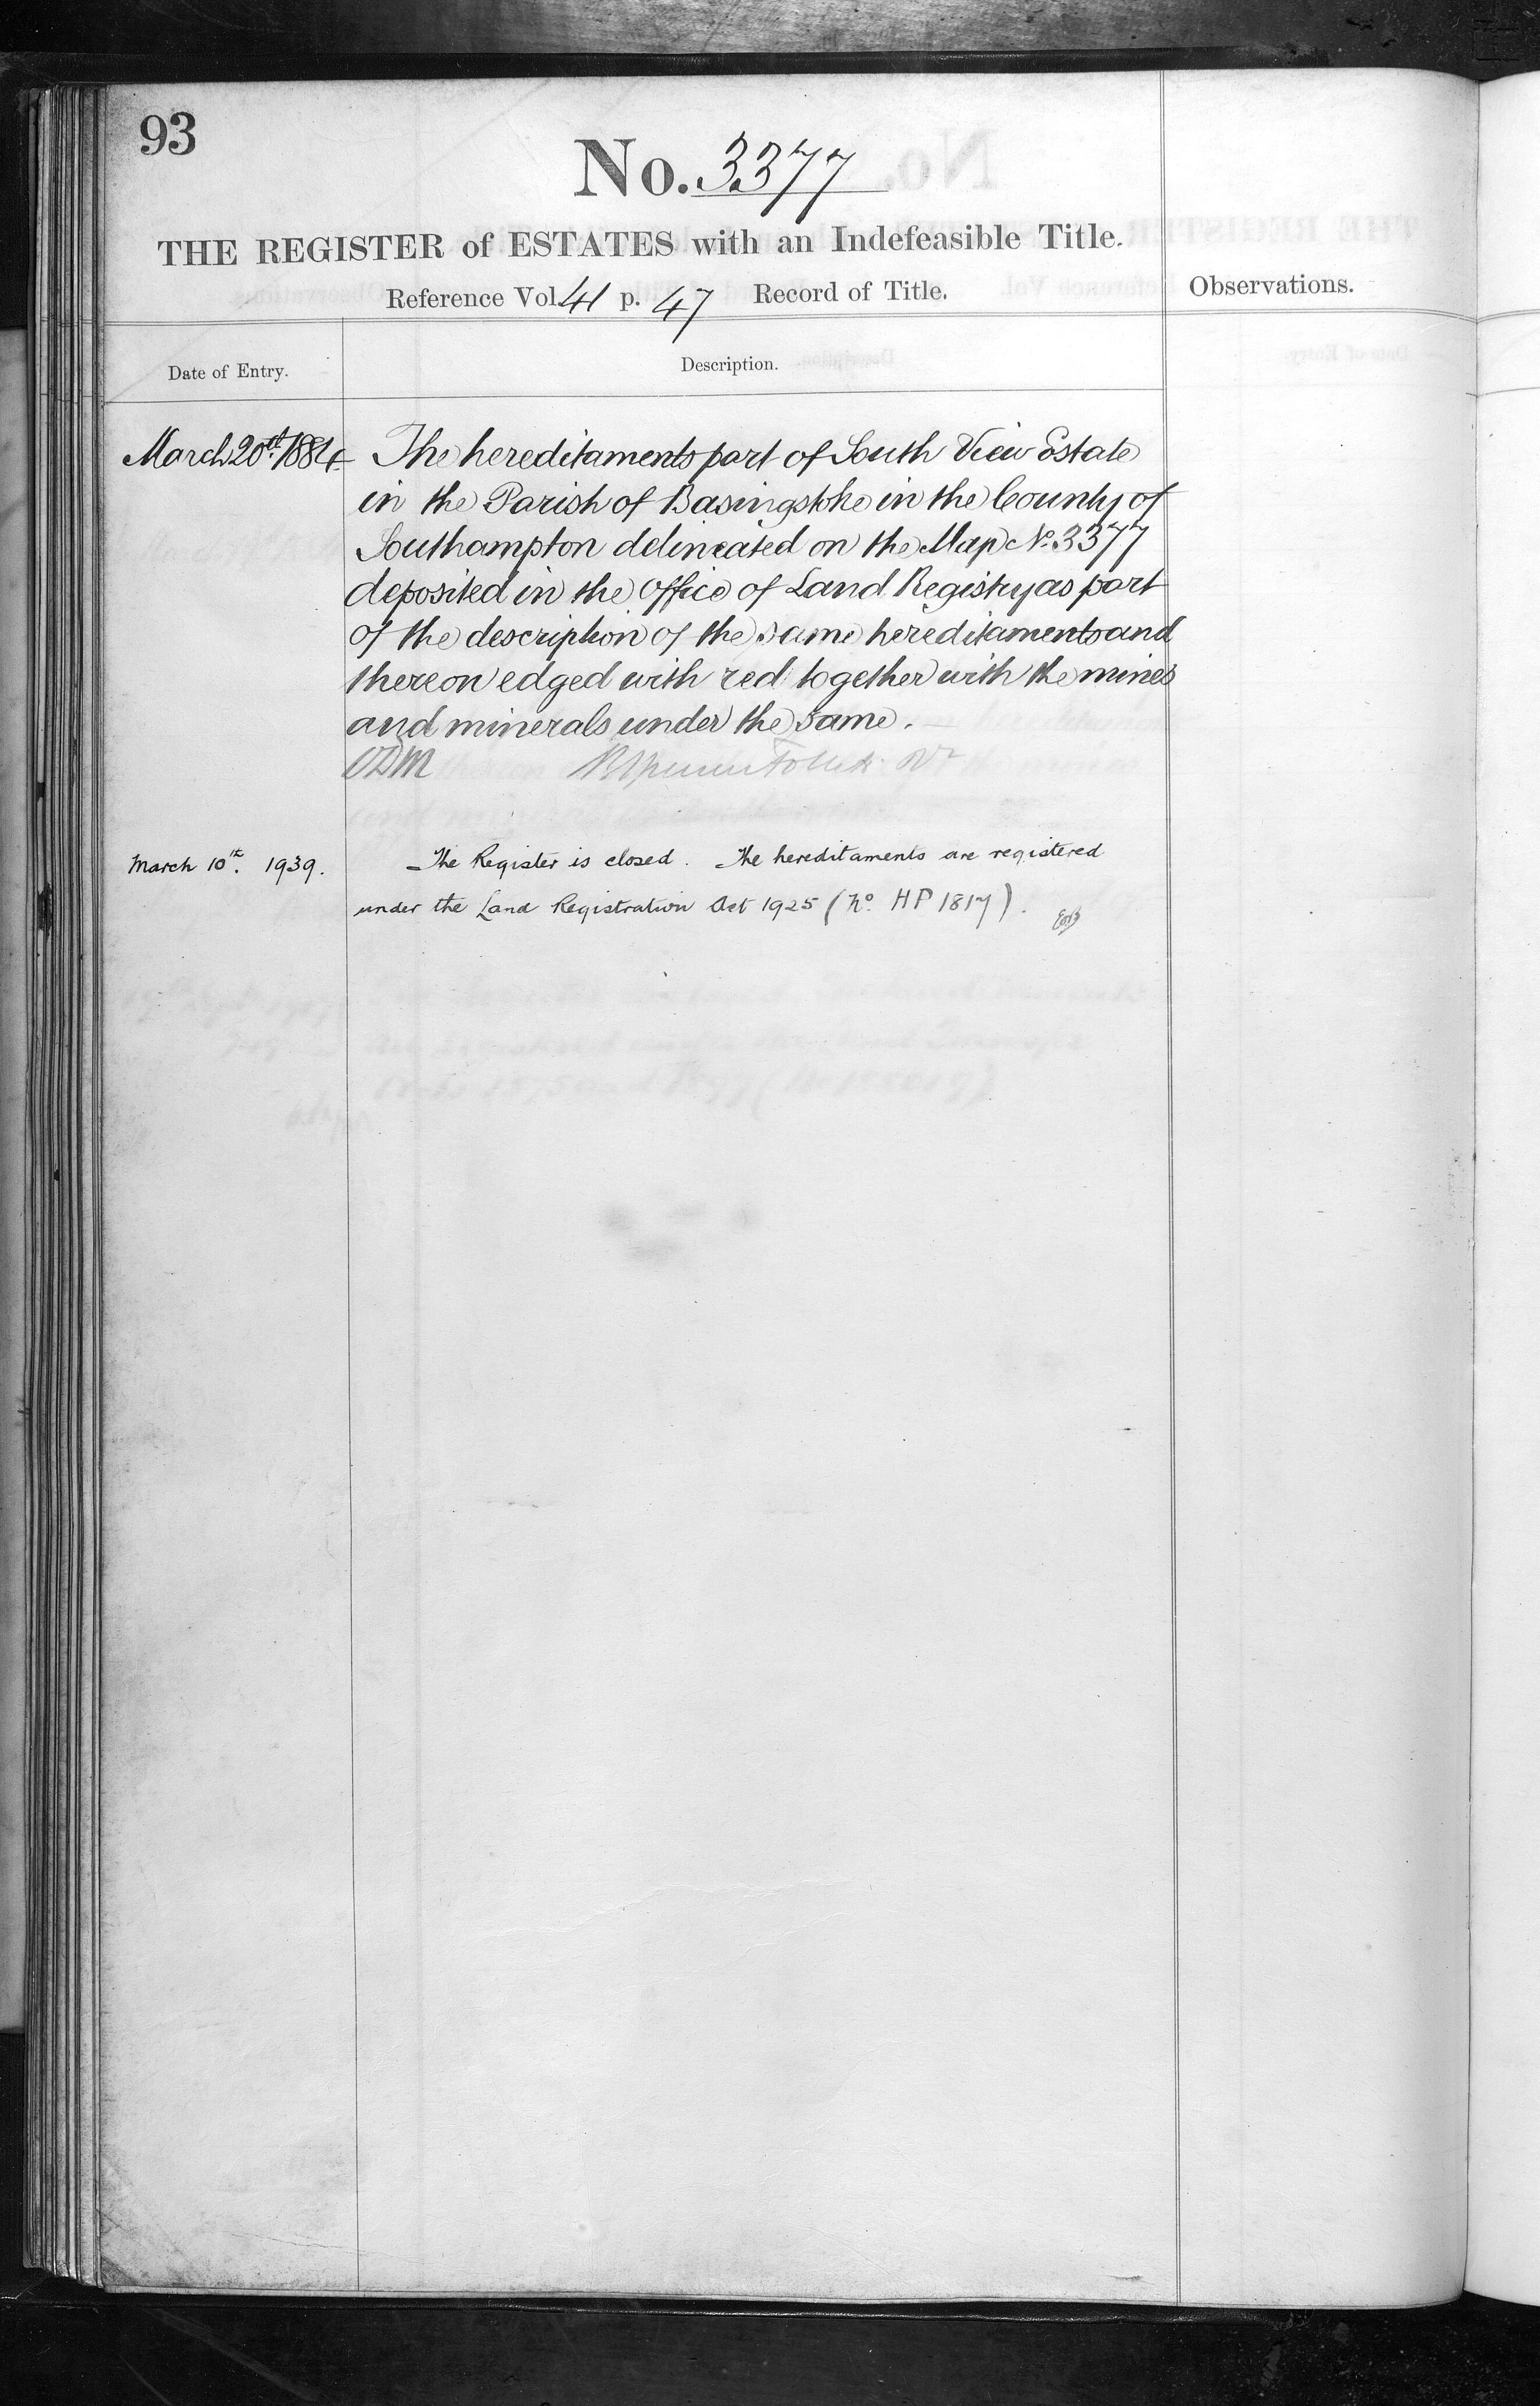 93
No. 3377
THE REGISTER of ESTATES with an Indefeasible Title.
Reference Vol. 41 p. 47 Record of Title.
Observations.
Date of Entry.
Description.
March 20th 1884
The hereditaments part of South View Estate
in the Parish of Basingstoke in the County of
Southampton delineated on the Map No. 3377
deposited in the Office of Land Registry as part
of the description of the same hereditaments and
thereon edged with red together with the mines
and minerals under the same.
March 10th. 1939.
The Register is closed. The hereditaments are registered
under the Land Registration Act 1925 (No. HP 1817).